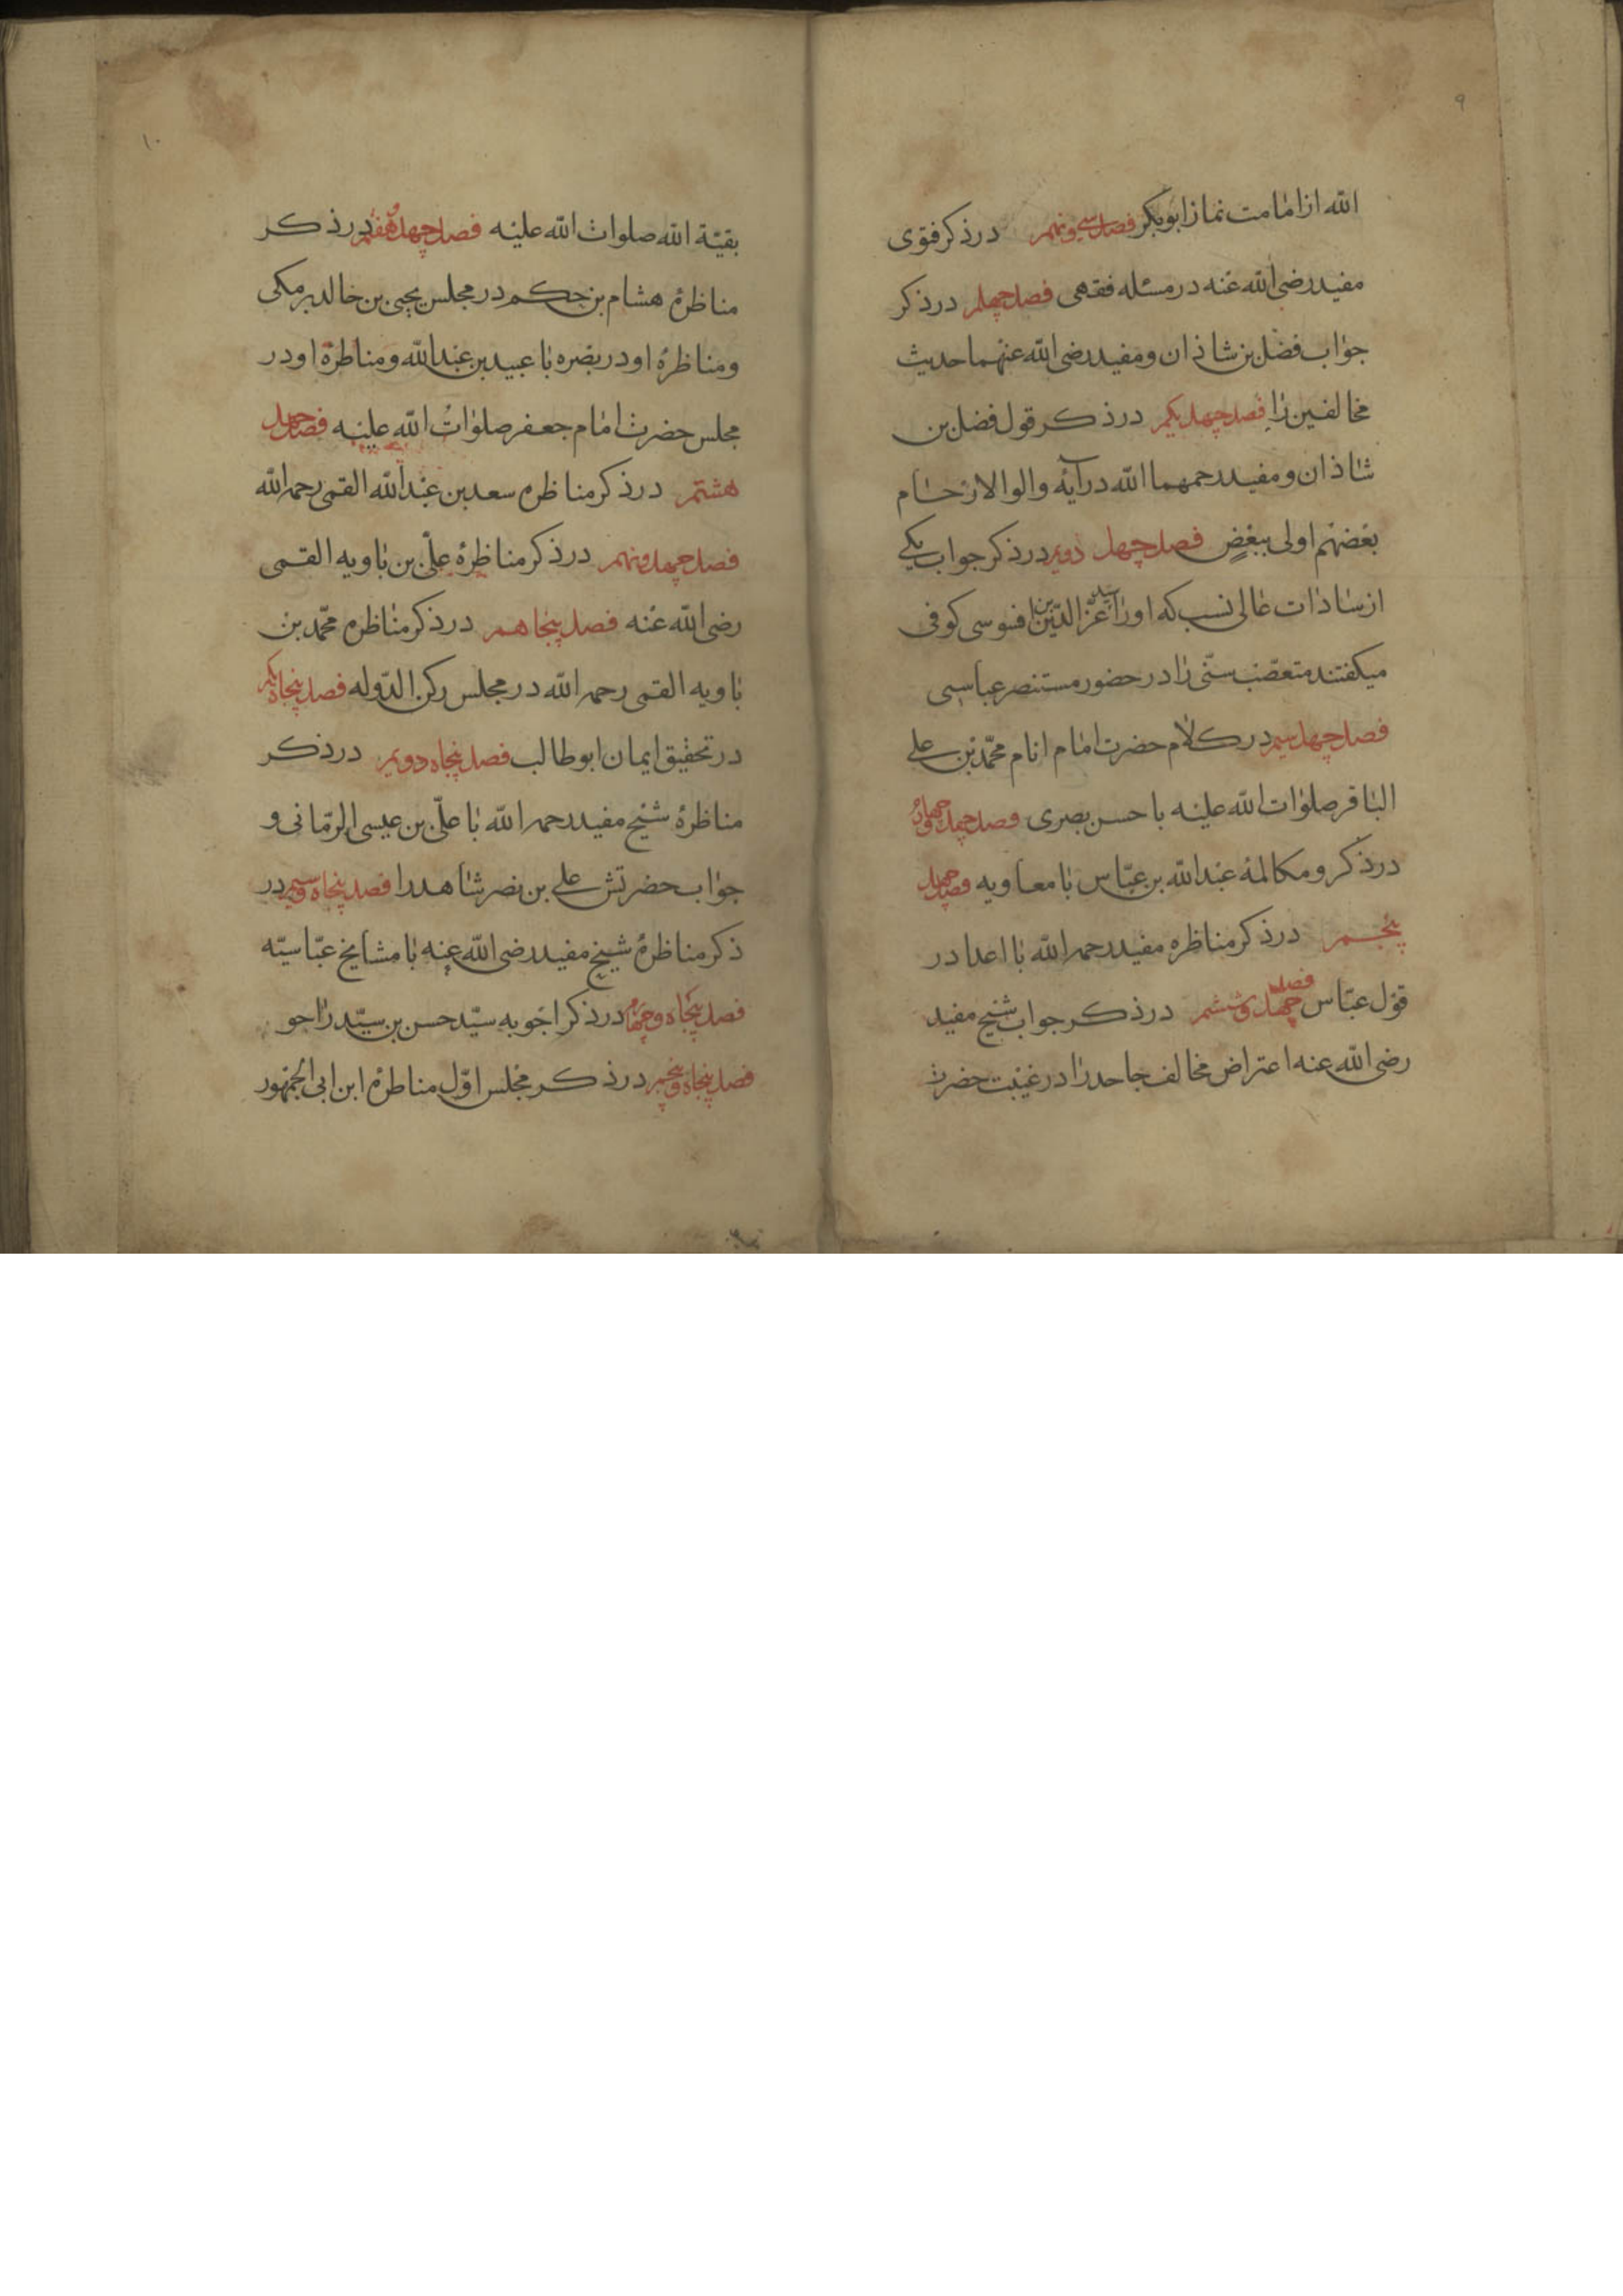 ۹
الله از امامت نماز ابوبکر فصل سی و نهم در ذکر فتوی
مفید رضی الله عنه در مسئله فقهی فصل چهلم در ذکر
جواب فضل بن شاذان و مفید رضی الله عنهما حدیث
مخالفین را فصل چهل یکم در ذکر قول فضل بن
شاذان و مفید رحمهما الله در آیۀ والوا الارحام
بعضهم اولی ببعض فصل چهل دویم در ذکر جواب یکی
از سادات عالی نسب که او را عز الدین کوفی
میکفتند متعصّب سنّی را در حضور مستنصر عباسی
فصل چهل سیم در کلام حضرت امام انام محمّد بن علی
الباقر صلوات الله علیه با حسن بصری فصل چهل و چهارم
در ذکر و مکالمۀ عبدالله بن عبّاس با معاویه فصل چهل
پنجم در ذکر مناظره مفید رحمه الله با اعدا در
قول عبّاس فصل چهل و ششم در ذکر جواب شیخ مفید
رضی الله عنه اعتراض مخالف جاحد را در غیبت حضرت
۱۰
بقیّة الله صلوات الله علیه فصل چهل و هفتم در ذکر
مناظرۀ هشام بن حکم در مجلس یحیی بن خالد برمکی
و مناظرۀ او در بصره با عبید بن عبدالله و مناظرۀ او در
مجلس حضرت امام جعفر صلوات الله علیه فصل چهل
هشتم در ذکر مناظره سعد بن عبدالله القمی رحمه الله
فصل چهل و نهم در ذکر مناظرۀ علّی بن باویه القمی
رضی الله عنه فصل پنجاهم در ذکر مناظره محمّد بن
باویه القمی رحمه الله در مجلس رکن الدّوله فصل پنجاه یکم
در تحقیق ایمان ابوطالب فصل پنجاه دویم در ذکر
مناظرۀ شیخ مفید رحمه الله با علّی بن عیسی الرمّانی و
جواب حضرتش علی بن نصر شاهد را فصل پنجاه و سیم در
ذکر مناظرۀ شیخ مفید رضی الله عنه با مشایخ عبّاسیّه
فصل پنجاه و چهارم در ذکر اجوبه سیّد حسن بن سیّد
فصل پنجاه و پنجم در ذکر مجلس اوّل مناظرۀ ابن ابی الجمهور